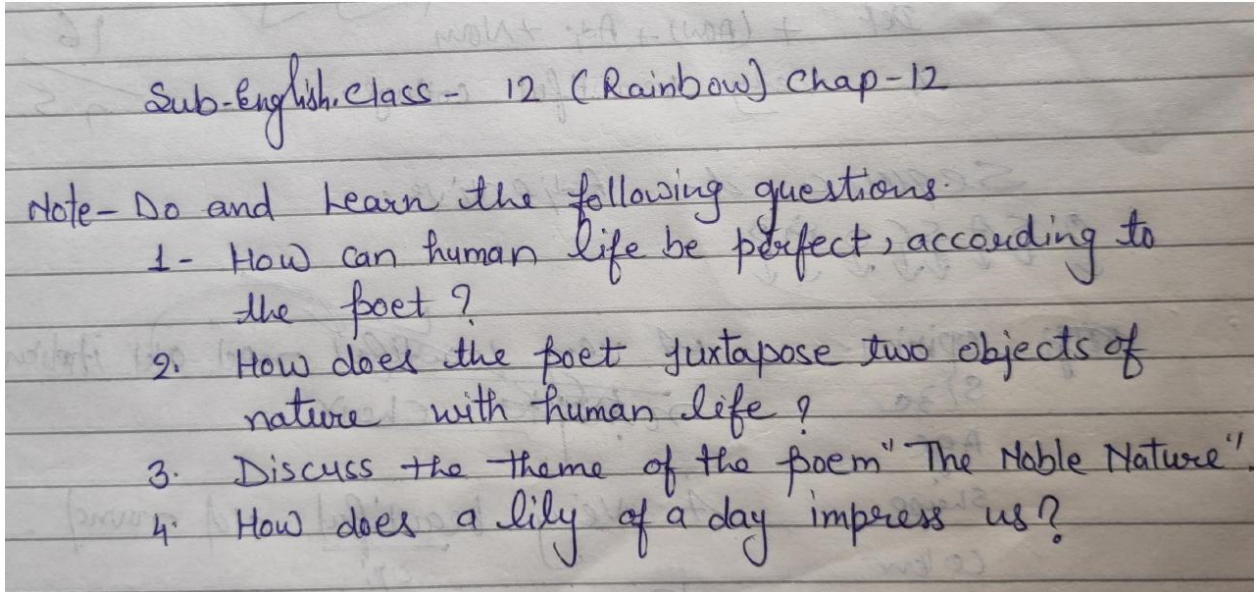 Sub-English. Class - 12 (Rainbow) Chap-12
Note- Do and Learn the following questions.
1- How can human life be perfect, according to
the poet ?
2. How does the poet juxtapose two objects of
nature with human life ?
3. Discuss the theme of the poem "The Noble Nature".
4. How does a lily of a day impress us ?